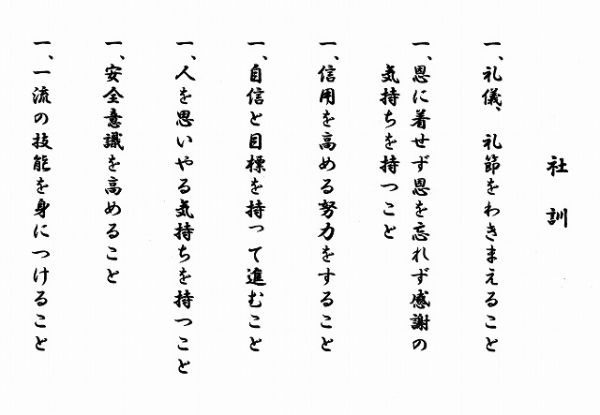 社訓
一、礼儀、礼節をわきまえること
一、恩に着せず恩を忘れず感謝の
気持ちを持つこと
一、信用を高める努力をすること
一、自信と目標を持って進むこと
一、人を思いやる気持ちを持つこと
一、安全意識を高めること
一、一流の技能を身につけること